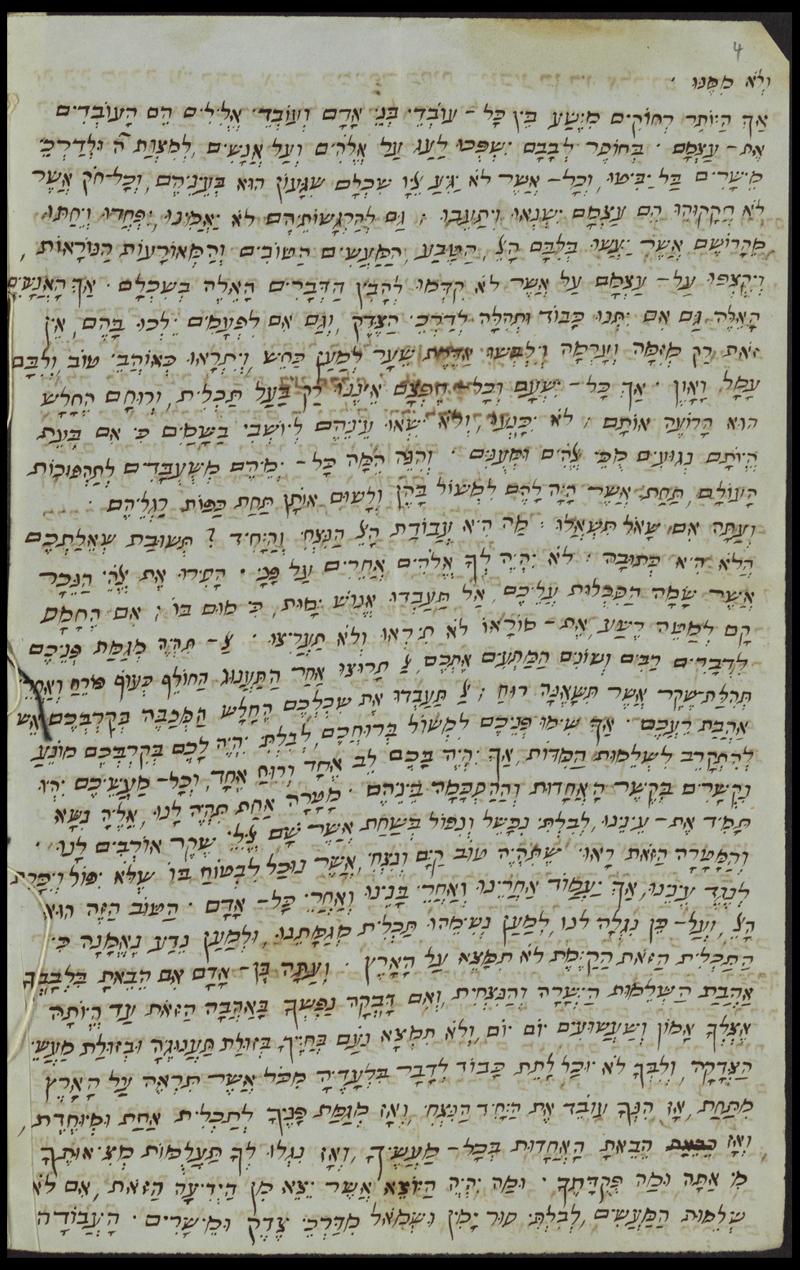 4
וְלֹא מִמֶּנּוּ .
אַךְ הַיּוֹתֵר רְחוֹקִים מִיֶּשַׁע בֵּין כָּל־ עוֹבְדֵי בְּנֵי אָדָם וְעוֹבְדֵי אֱלִילִים הֵם הָעוֹבְדִים
אֶת־ עַצְמָם . בְּחוֹסֶר לְבָבָם יִשְׁפְּכוּ לַעַג עַל אֱלֹהִים וְעַל אֲנָשִׁים , לְמִצְוַת ה וּלְדַרְכֵי
מֵישָׁרִים בַּל יַבִּיטוּ , וְכָל־ אֲשֶׁר לֹא יַגִּיעַ אֵלָיו שִׂכְלָם שִׁגָּעוֹן הוּא בְּעֵינֵיהֶם , וְכָל־חֹק אֲשֶׁר
לֹא חֲקָקוּהוּ הֵם עַצְמָם יִשְׂנְאוּ וִיתַעֲבוּ ; גַּם לְהַרְגָּשׁוֹתֵיהֶם לֹא יַאֲמִינוּ , יִפְחֲדוּ וְיֵחַתּוּ
מֵהָרוֹשֶׁם אֲשֶׁר יַעֲשׂוּ בְּלִבָּם הָאֵל , הַטֶּבַע , הַמַּעֲשִׂים הַטּוֹבִים וְהַמְּאוֹרָעוֹת הַנּוֹרָאוֹת ,
וְיִקְצְפוּ עַל־ עַצְמָם עַל אֲשֶׁר לֹא קִדְּמוּ לְהָבִין הַדְּבָרִים הָאֵלֶּה בְּשִׂכְלָם . אַךְ הָאֲנָשִׁים
הָאֵלֶּה גַּם אִם יִתְּנוּ כָּבוֹד וּתְהִלָּה לְדַרְכֵי הַצֶּדֶק , וְגַם אִם לִפְעָמִים יֵלְכוּ בָּהֶם , אֵין
זֹאת רַק מְזִמָּה וְעָרְמָה וְיִלְבְּשׁוּ אַדֶּרֶת שֵׂעָר לְמַעַן כַּחֵשׁ , וְיִתְרָאוּ כְּאוֹהֲבֵי טוֹב , וְלִבָּם
עָמָל וָאָוֶן . אַךְ כָּל־ יִשְׁעָם וְכָל־ חֶפְצָם אֵינֶנּוּ רַק בַּעַל תַּכְלִית , וְרוּחָם הֶחָלָשׁ
הוּא הָרוֹעֶה אוֹתָם ; לֹא יִכָּנְעוּ , וְלֹא יִשְׂאוּ עֵינֵיהֶם לְיוֹשְׁבִי בַּשָּׁמַיִם כִּי אִם בְּעֵת
הֱיוֹתָם נְגוּעִים מֻכֵּי אֱלֹהִים וּמְעֻנִּים . וְהִנֵּה הֵמָּה כָּל־ יְמֵיהֶם מְשֻׁעְבָּדִים לְתַהְפּוּכוֹת
הָעוֹלָם , תַּחַת אֲשֶׁר הָיָה לָהֶם לִמְשׁוֹל בָּהֶן וְלָשׂוּם אוֹתָן תַּחַת כַּפּוֹת רַגְלֵיהֶם .
וְעַתָּה אִם שָׁאֹל תִּשְׁאֲלוּ : מַה הִיא עֲבוֹדַת הָאֵל הַנִּצְחִי וְהַיָּחִיד ? תְּשׁוּבַת שְׁאֵלַתְכֶם
הֲלֹא הִיא כְּתוּבָה : לֹא יִהְיֶה לְךָ אֱלֹהִים אֲחֵרִים עַל פָּנָי . הָסִירוּ אֶת אֱלֹהֵי הַנֵּכָר
אֲשֶׁר שָׂמָה הַסִּכְלוּת עֲלֵיכֶם , אַל תַּעַבְדוּ אֱנוֹשׁ יָמוּת , כִּי מוּם בּוֹ ; אִם הֶחָמָס
קָם לְמַטֵּה רֶשַׁע , אֶת־ מוֹרָאוֹ לֹא תִירְאוּ וְלֹא תַעֲרִיצוּ . אַל־ תִּהְיֶה מְגַמַּת פְּנֵיכֶם
לִדְבָרִים רַבִּים וְשׁוֹנִים הַמַּתְעִים אֶתְכֶם , אַל תָּרוּצוּ אַחַר הַתַּעֲנוּג הַחוֹלֵף כְּעוֹף פּוֹרֵחַ וְאַחֲרֵי
תְּהִלַּת־שֶׁקֶר אֲשֶׁר תִּשָּׂאֶנָּה רוּחַ ; אַל תַּעַבְדוּ אֶת שִׂכְלְכֶם הֶחָלָשׁ הַמְּכַבֶּה בְּקִרְבְּכֶם אֵשׁ
אַהֲבַת רֵעֲכֶם . אַךְ שִׂימוּ פְנֵיכֶם לִמְשׁוֹל בְּרוּחֲכֶם , לְבִלְתִּי יִהְיֶה לָכֶם בְּקִרְבְּכֶם מוֹנֵעַ
לְהִתְקָרֵב לִשְׁלֵמוּת הַמִּדּוֹת , אַךְ יִהְיֶה בָּכֶם לֵב אֶחָד וְרוּחַ אֶחָד , וְכָל־ מַעֲשֵׂיכֶם יִהְיוּ
נִקְשָׁרִים בְּקֶשֶׁר הָאַחֲדוּת וְהַהַסְכָּמָה בֵּינֵיהֶם . מַטָּרָה אַחַת תִּהְיֶה לָנוּ , אֵלֶיהָ נִשָּׂא
תָּמִיד אֶת־ עֵינֵינוּ , לְבִלְתִּי נִכָּשֵׁל וְנִפּוֹל בְּשַׁחַת אֲשֶׁר שָׁם אֱלִילֵי שֶׁקֶר אוֹרְבִים לָנוּ .
וְהַמַּטָּרָה הַזֹּאת רָאוּי שֶׁתִּהְיֶה טוֹב קַיָּם וְנִצְחִי , אֲשֶׁר נוּכַל לִבְטוֹחַ בּוֹ שֶׁלֹּא יִפּוֹל וְיִכָּרֵת
לְנֶגֶד עֵינֵינוּ , אַךְ יַעֲמוֹד אַחֲרֵינוּ וְאַחֲרֵי בָּנֵינוּ וְאַחֲרֵי כָּל־ אָדָם . הַטּוֹב הַזֶּה הוּא
הָאֵל , וְעַל־ כֵּן נִגְלָה לָנוּ , לְמַעַן נְשִׂימֵהוּ תַּכְלִית מְגַמָּתֵנוּ , וּלְמַעַן נֵדַע נֶאֱמָנָה כִּי
הַתַּכְלִית הַזֹּאת הַקַּיֶּמֶת לֹא תִמָּצֵא עַל הָאָרֶץ . וְעַתָּה בֶּן־ אָדָם אִם הֵבֵאתָ בִּלְבָבְךָ
אַהֲבַת הַשְּׁלֵמוּת הַיְשָׁרָה וְהַנִּצְחִית , וְאִם דָּבְקָה נַפְשְׁךָ בָּאַהֲבָה הַזֹּאת עַד הֱיוֹתָהּ
אֶצְלְךָ אָמוֹן וְשַׁעֲשׁוּעִים יוֹם יוֹם , וְלֹא תִמְצָא נֹעַם בְּחַיֶּיךָ , בְּזוּלַת תַּעֲנוּגֶהָ וּבְזוּלַת מַעֲשֵׂי
הַצְּדָקָה , וְלִבְּךָ לֹא יוּכַל לָתֵת כָּבוֹד לְדָבָר בִּלְעָדֶיהָ מִכֹּל אֲשֶׁר תִּרְאֶה עַל הָאָרֶץ
מִתַּחַת , אָז הִנְּךָ עוֹבֵד אֶת הַיָּחִיד הַנִּצְחִי , וְאָז מְגַמַּת פָּנֶיךָ לְתַכְלִית אַחַת וּמְיוּחֶדֶת ,
וְאָז הֵבֵאתָ הָאַחֲדוּת בְּכָל־ מַעֲשֶׂיךָ , וְאָז נִגְלוּ לְךָ תַּעֲלֻמוֹת מְצִיאוּתֶךָ
מִי אַתָּה וּמַה פְּקֻדָּתֶךָ . וּמַה יִּהְיֶה הַיּוֹצֵא אֲשֶׁר יֵצֵא מִן הַיְדִיעָה הַזֹּאת , אִם לֹא
שְׁלֵמוּת הַמַּעֲשִׂים , לְבִלְתִּי סוּר יָמִין וּשְׂמֹאל מִדַּרְכֵי צֶדֶק וּמֵישָׁרִים . הָעֲבוֹדָה